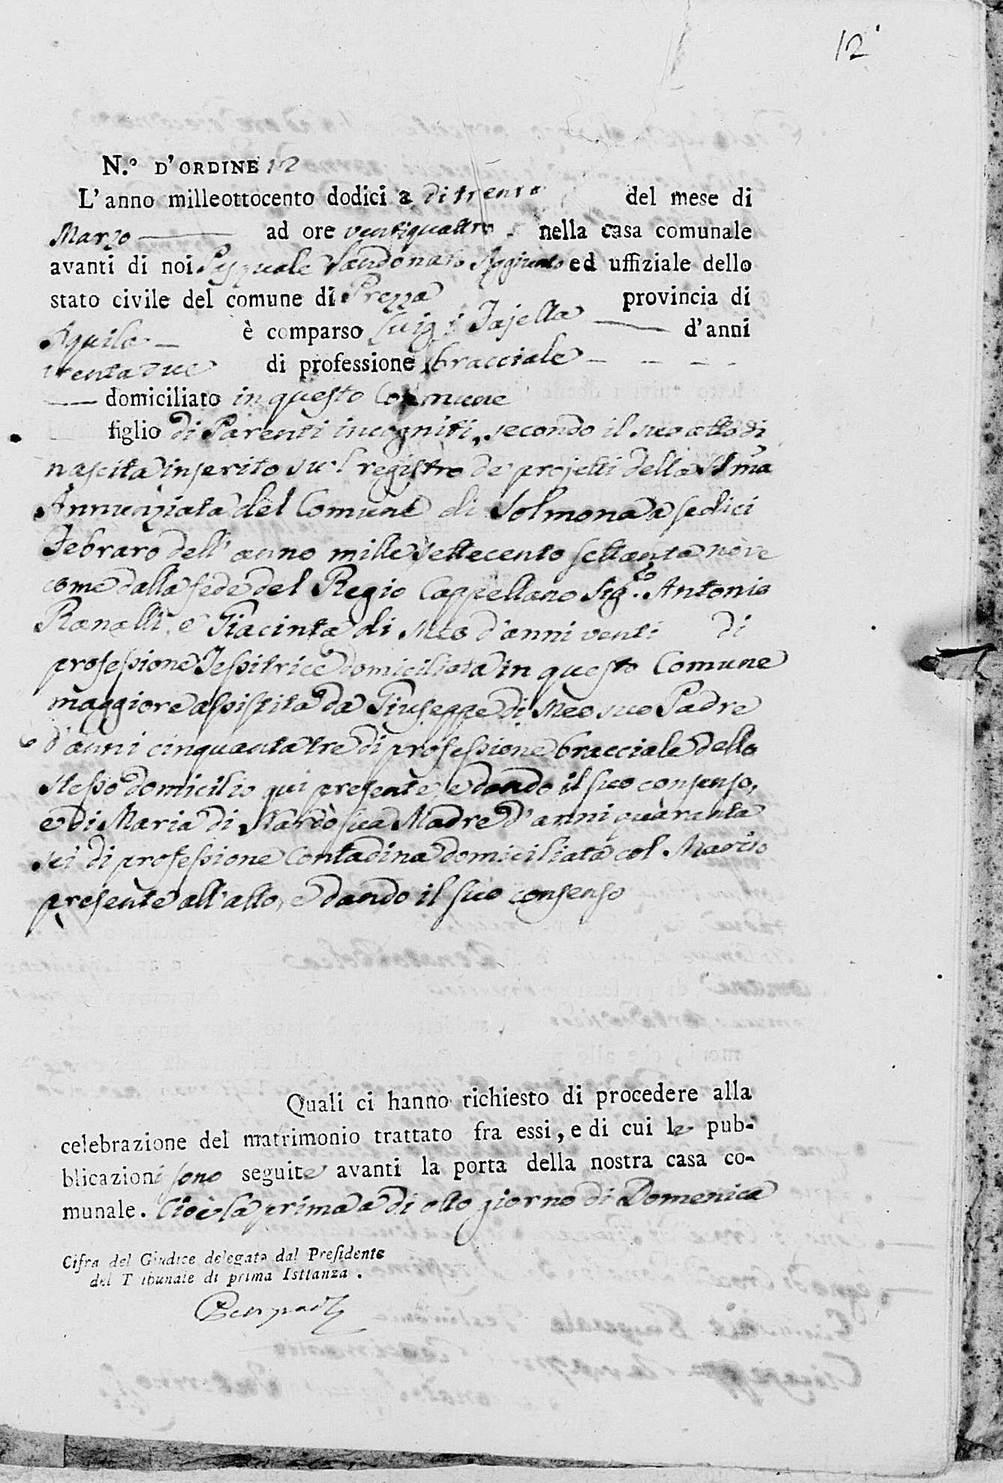 12
N.º D'ORDINE 12
L'anno milleottocento dodici a di trenta del mese di
Marzo ad ore ventiquattro nella casa comunale
avanti di noi Pasquale Sandonato Aggiunto ed uffiziale dello
stato civile del comune di Prezza provincia di
Aquila è comparso Luigi Tajella d'anni
trentadue di professione bracciale
domiciliato in questo Commune
figlio di Parenti incogniti, secondo il suo atto di
nascita inserito su'l registro de' projetti della SSma
Annunziata del Comune di Solmona a sedici
Febraro dell'anno mille settecento settanta nove
come dalla fede del Regio Cappellano Sig.º Antonio
Ranalli, e Giacinta di Meo d'anni venti di
professione Tessitrice domiciliata in questo Comune
maggiore assistita da Giuseppe di Meo suo Padre
d'anni cinquantatre di professione bracciale dello
stesso domicilio qui presente, e dando il suo consenso,
e di Maria di Nardo sua Madre d'anni quaranta
sei di professione Contadina domiciliata col Marito
presente all'atto, e dando il suo consenso
Quali ci hanno richiesto di procedere alla
celebrazione del matrimonio trattato fra essi, e di cui le pub-
blicazioni sono seguite avanti la porta della nostra casa co-
munale. Cioè la prima a di otto giorno di Domenica
Cifra del Giudice delegato dal Presidente
del T ibunale di prima Isttanza.